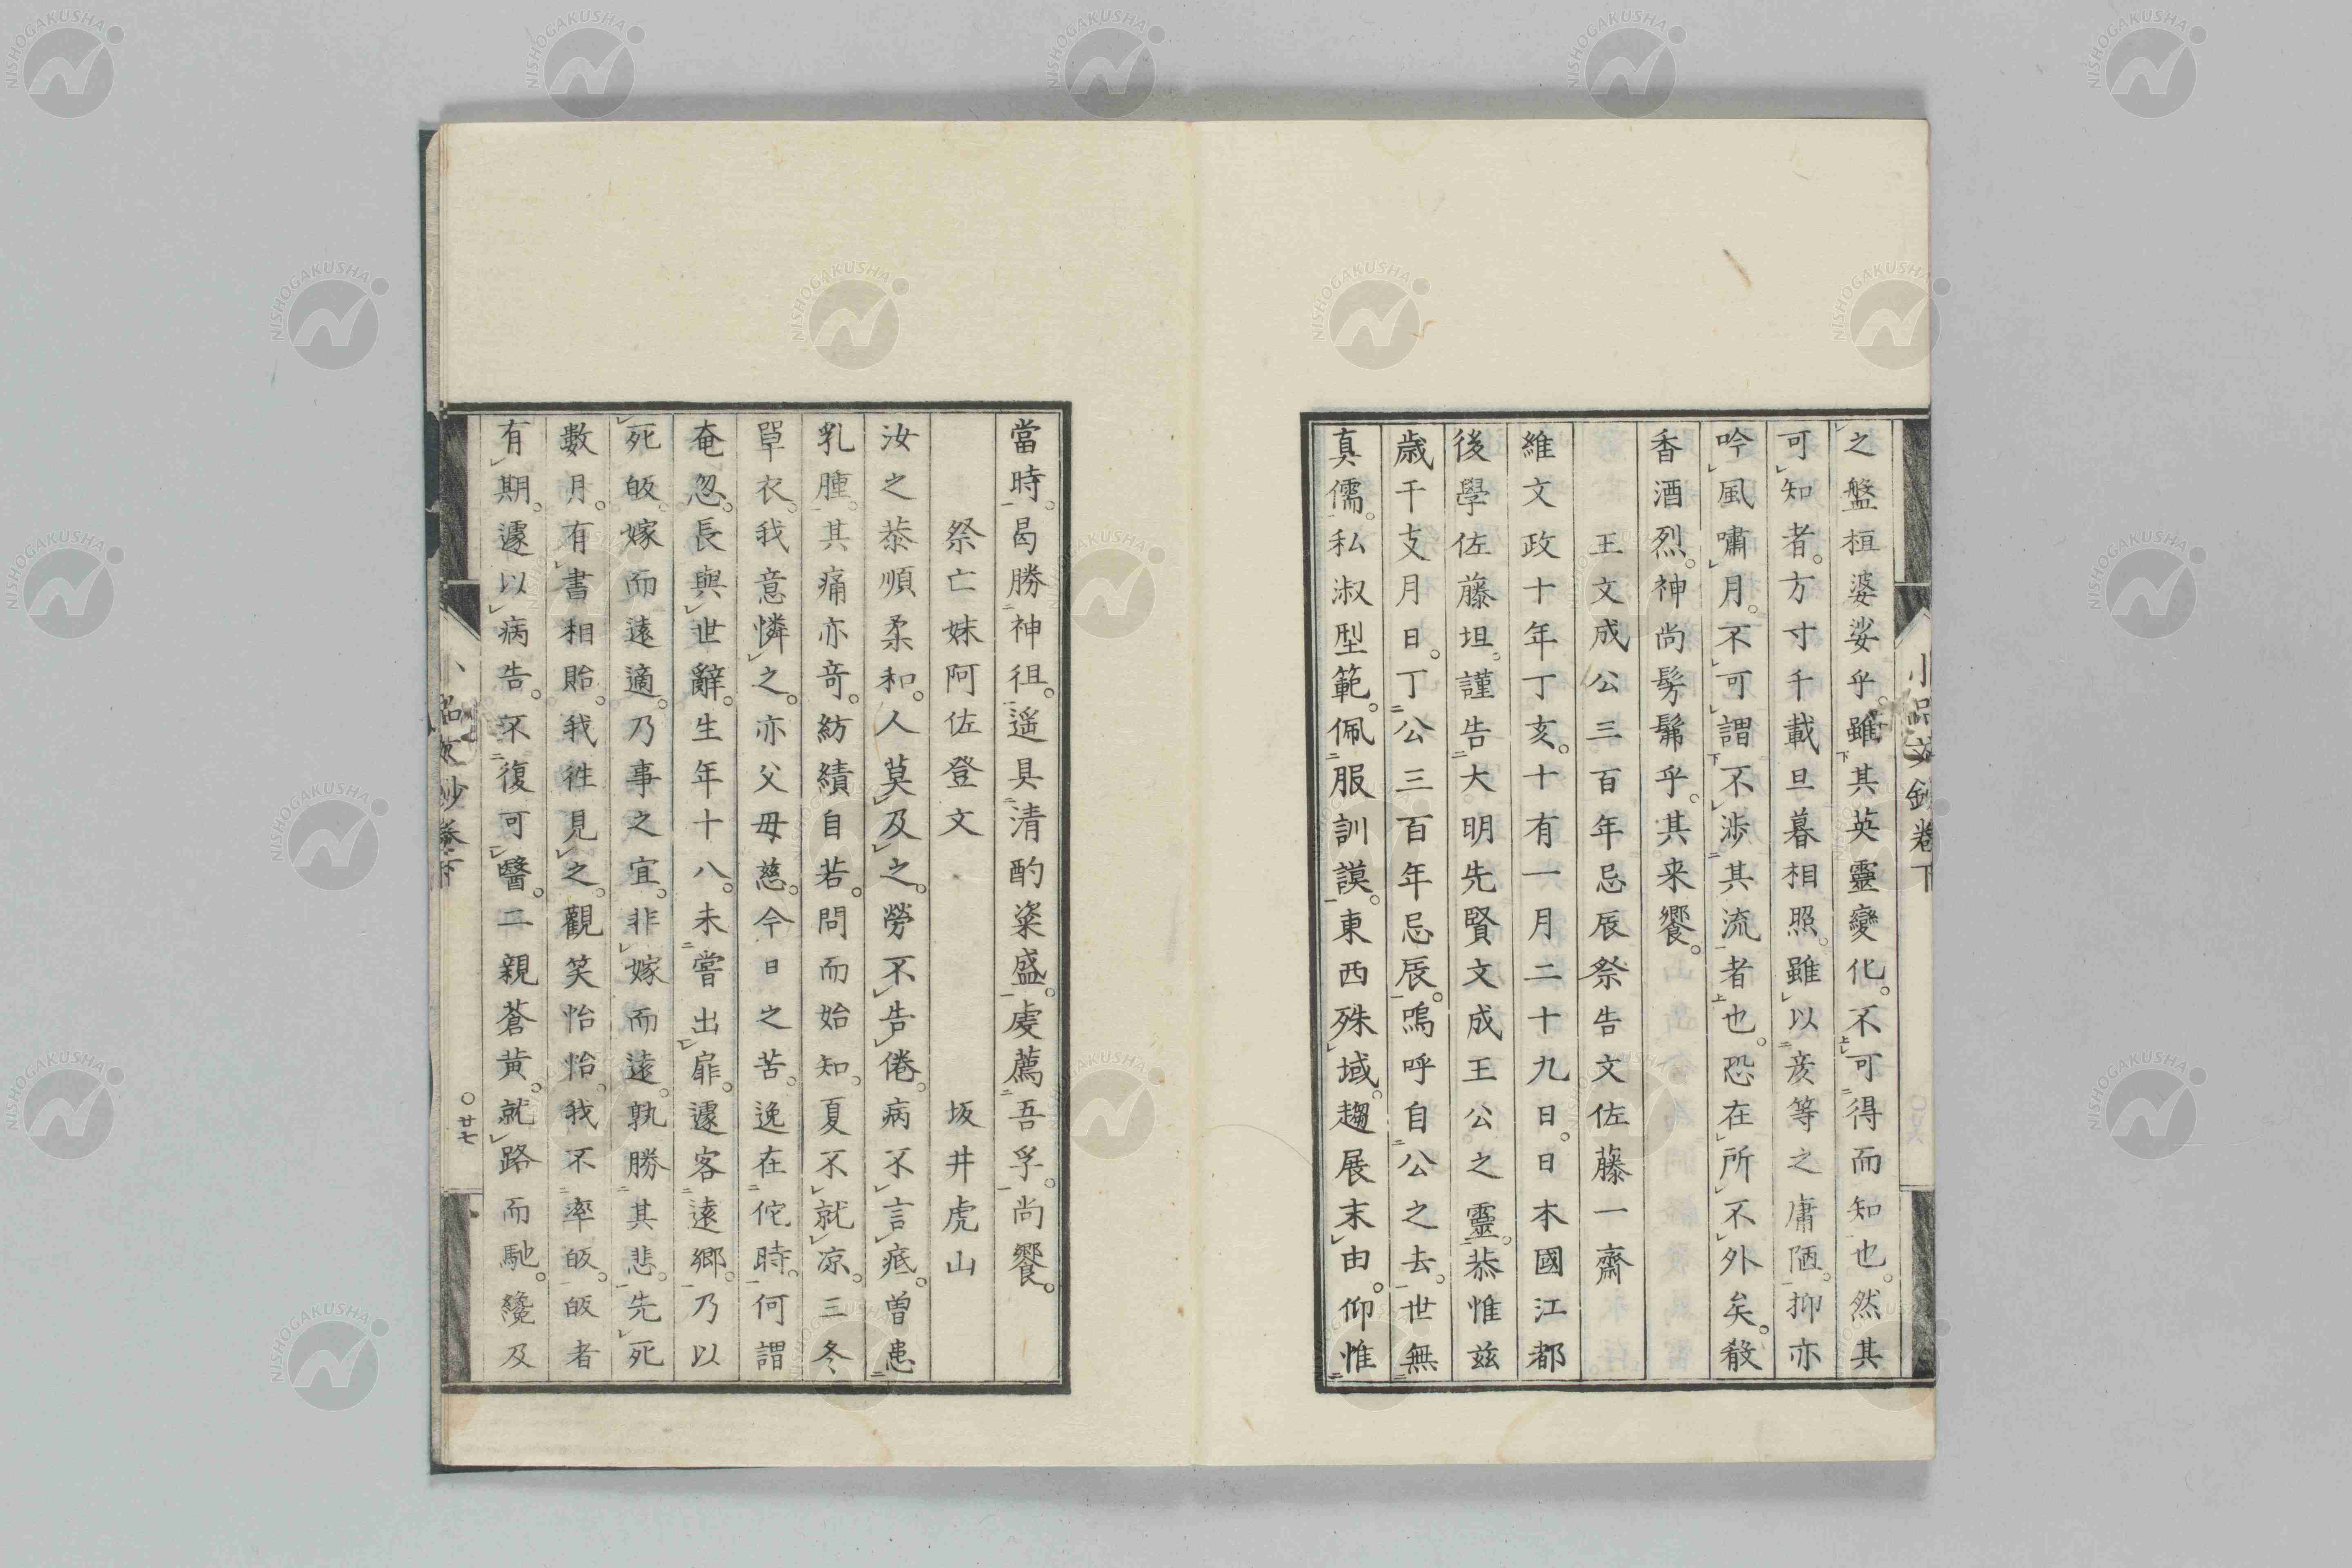 之盤桓婆娑乎。雖其英靈變化。不可得而知也。然其
可知者。方寸千載旦暮相照。雖以彦等之庸陋。抑亦
吟風嘯月。不可謂不涉其流者也。恐在所不外矣。殽
香酒烈。神尚髣髴乎。其来饗。
王文成公三百年忌辰祭告文佐藤一齋
維文政十年丁亥。十有一月二十九日。日本國江都
後學佐藤坦。謹告大明先賢文成王公之靈。恭惟茲
歳干支月日。丁公三百年忌辰。嗚呼自公之去。世無
真儒。私淑型範。佩服訓謨。東西殊域。趨展末由。仰惟
小品文鈔卷下
當時。曷勝神徂。遥具清酌粢盛。虔薦吾孚。尚饗。
祭亡妹阿佐登文 坂井虎山
汝之恭順柔和。人莫及之。勞不告倦。病不言疷。曽患
乳腫。其痛亦竒。紡績自若。問而始知。夏不就凉。三冬
單衣。我意憐之。亦父母慈。今日之苦。逸在佗時。何謂
奄忽。長與世辭。生年十八。未嘗出扉。遽客遠鄉。乃以
死皈。嫁而遠適。乃事之宜。非嫁而遠。孰勝其悲。先死
數月。有書相貽。我徃見之。觀笑怡怡。我不率皈。皈者
有期。遽以病告。不復可醫。二親蒼黄。就路而馳。纔及
小品文鈔卷下
〇廿七